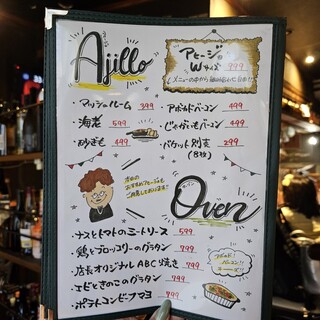 Ajillo
アヒージョ
Wサイズ 999
・マッシュルーム 399
・海老 599
・砂ぎも 499
・アボカドベーコン 499
・じゃがいもベーコン 499
・バケット別売 299
(8枚)
Oven
オーブン
・ナスとトマトのミートソース 599
・鶏とブロッコリーのグラタン 799
・店長オリジナルABC焼き 799
・エビときのこのグラタン 799
・ポテトコンビーフマヨ 499